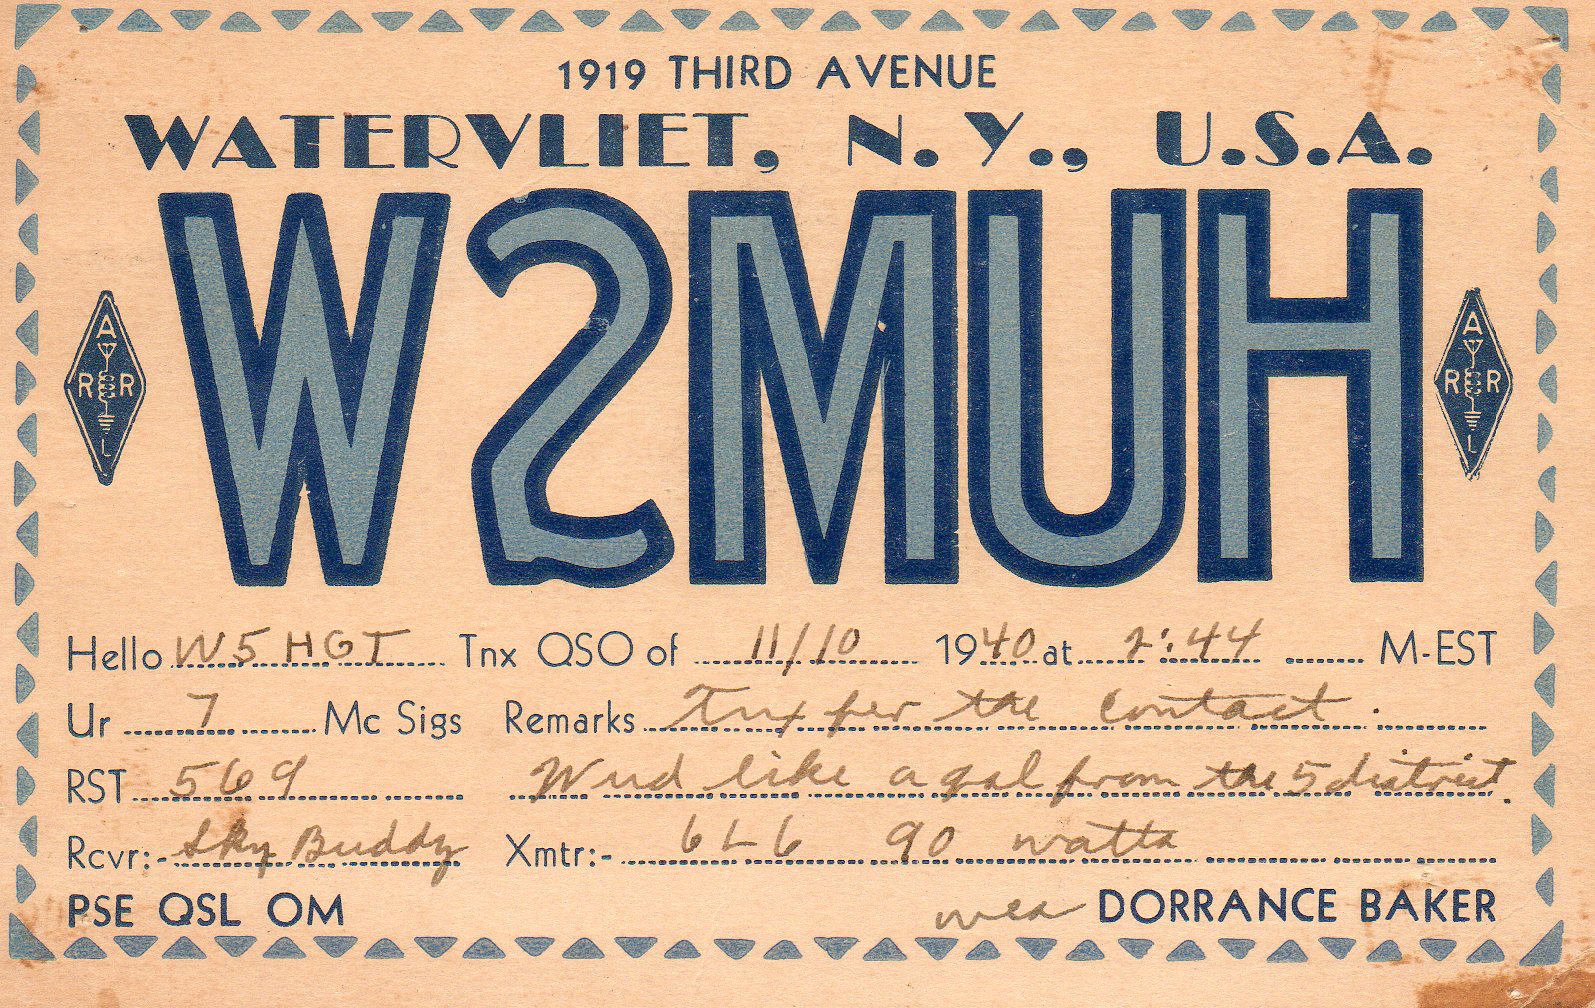 1919 THIRD AVENUE
WATERVLIET, N. Y., U.S.A.
W2MUH
A
R R
L
A
R R
L
Hello W5HGT Tnx QSO of 11/10 1940 at 2:44 M-EST
Ur 7 Mc Sigs Remarks Tnx fer the contact.
RST 569 Wud like a qsl from the 5 district.
Rcvr:- Sky Buddy Xmtr:- 6L6 90 watts
PSE QSL OM DORRANCE BAKER